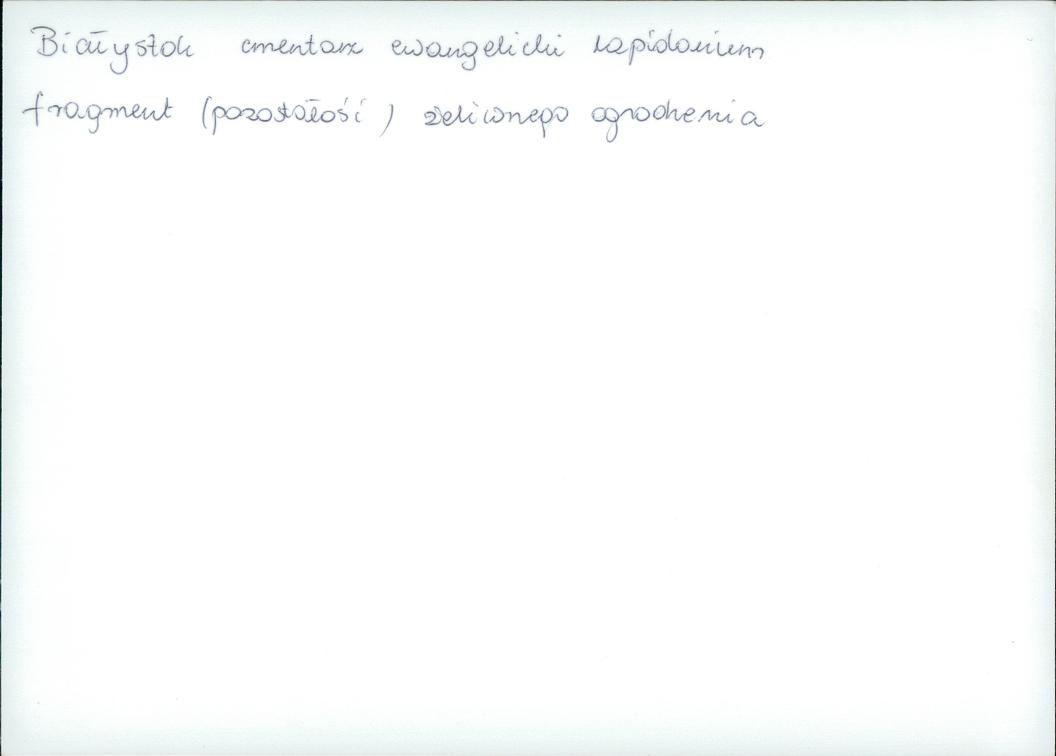 Białystok cmentarz ewangelicki lapidarium
fragment (pozostałość) żeliwnego ogrodzenia